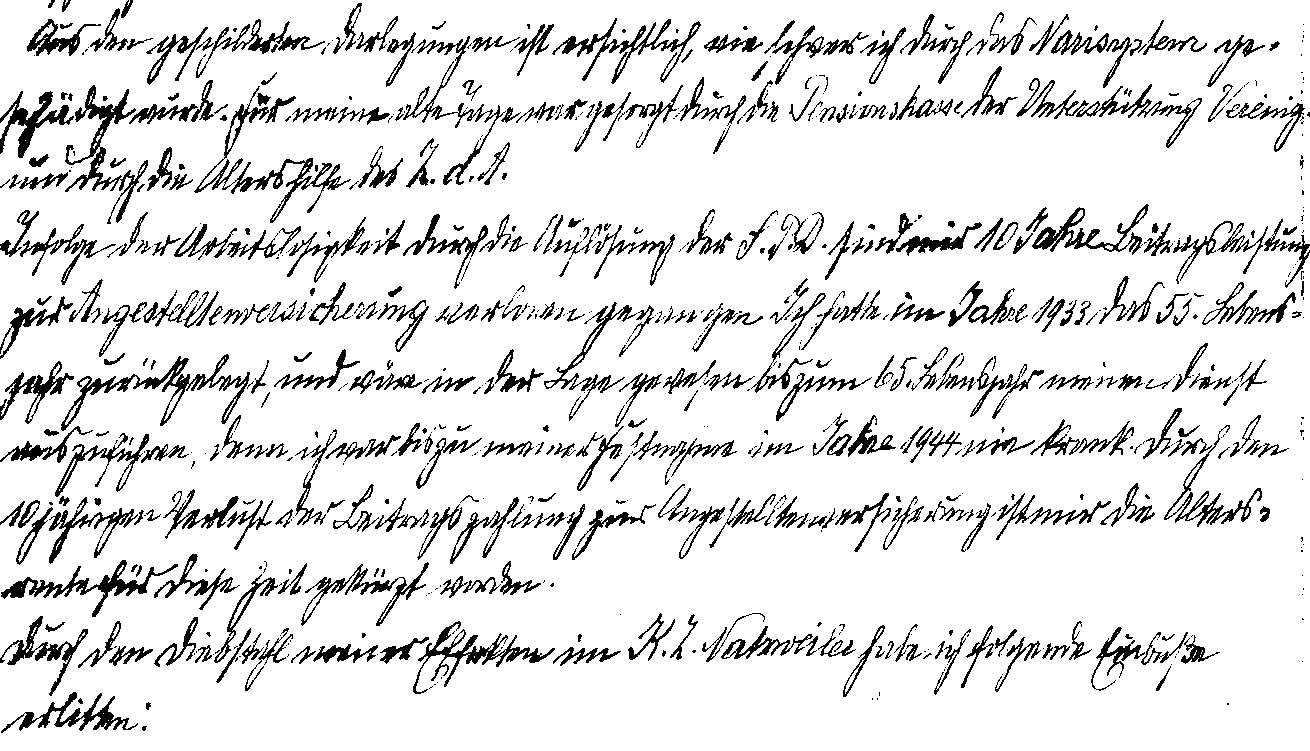 Aus den geschilderten Darlegungen ist ersichtlich, wie schwer ich durch das Nazisystem ge-
schädigt wurde. Für meine alte Tage war gesorgt durch die Pensionskasse der Unterstützung Vereinig.
und durch die Altershilfe des Z. d. A.
Infolge der Arbeitslosigkeit durch die Auflösung der S.P.D. sind mir 10 Jahre Beitragsleistung
zur Angestelltenversicherung verloren gegangen Ich hatte im Jahre 1933 das 55. Lebens-
jahr zurückgelegt, und wäre in der Lage gewesen bis zum 65. Lebensjahr meinen Dienst
auszuführen, denn ich war bis zu meiner Festnahme im Jahre 1944 nie krank. Durch den
10 jährigen Verlust der Beitragszahlung zur Angestelltenversicherung ist mir die Alters-
rente für diese Zeit gekürzt worden.
Durch den Diebstahl meiner Effekten im K.Z. Natzweiler habe ich folgende Einbuße
erlitten: